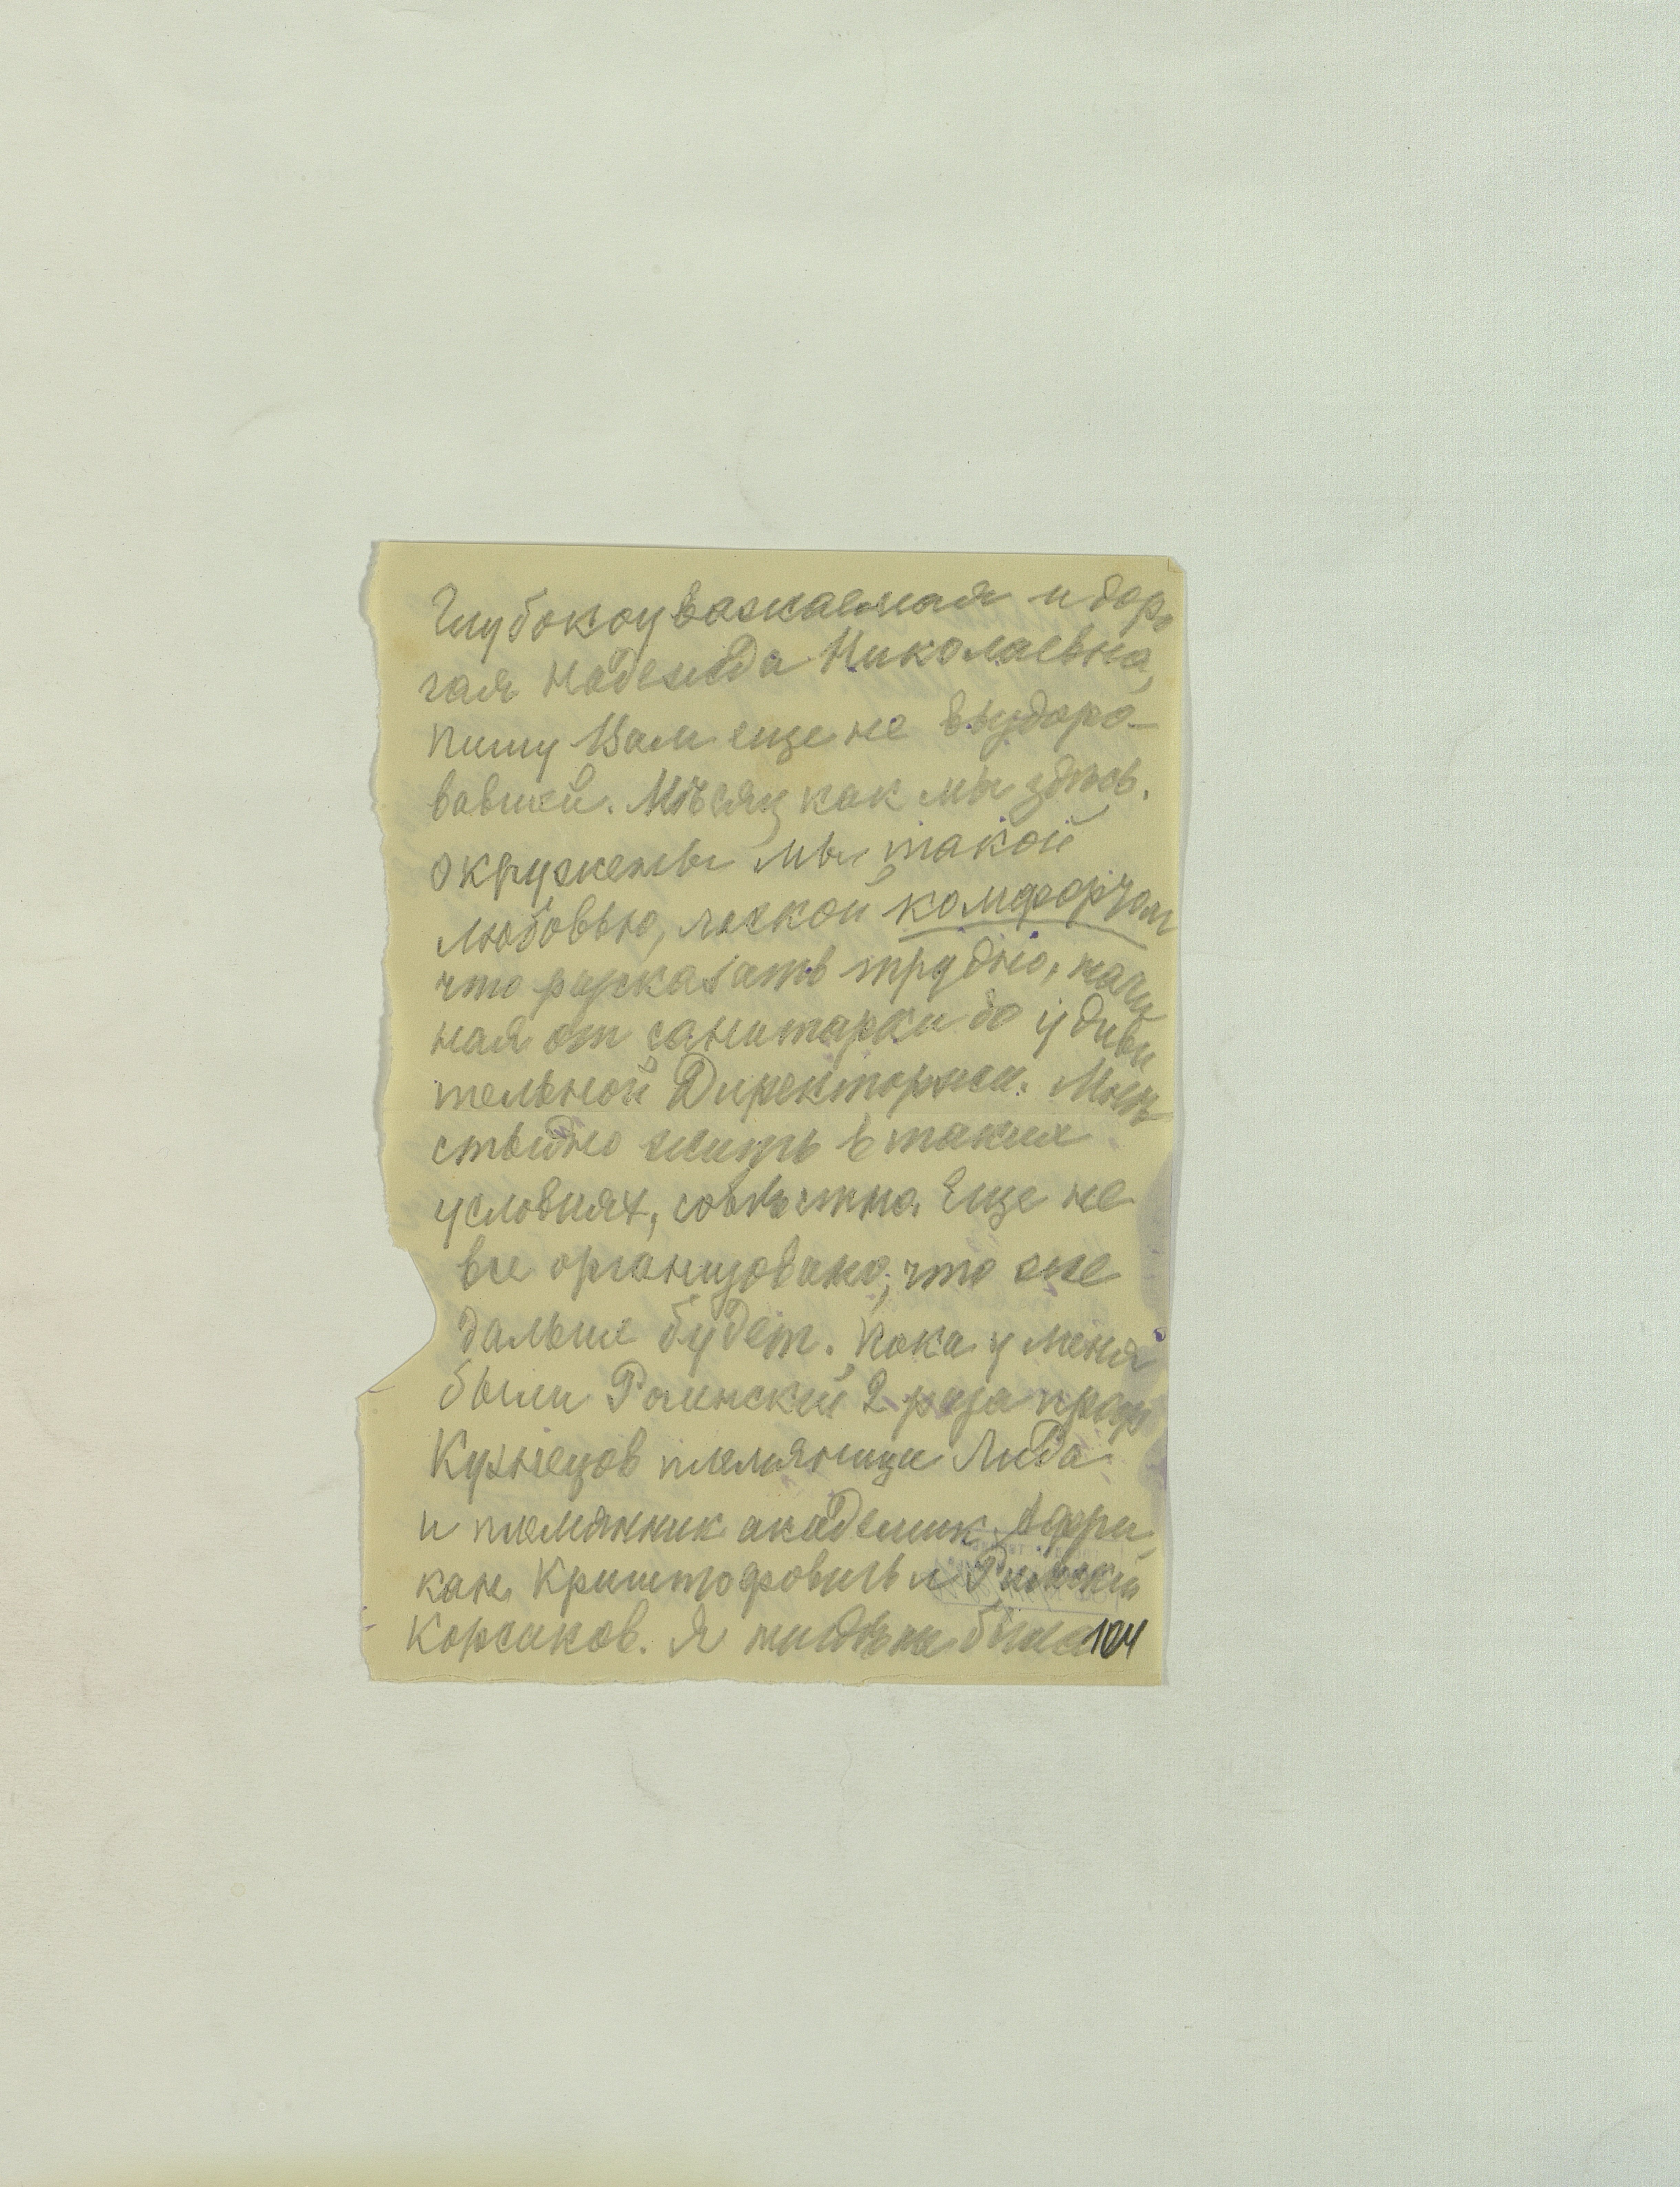 Глубокоуважаемая и доро
гая Надежда Николаевна,
пишу Вам еще не выздоро-
вовшей. Мѣсяц как мы здѣсь.
окружены мы такой
любовью, лаской комфортом
что рассказать трудно, начи
ная от санитарки до удиви
тельной Директорши. Мнѣ
стыдно жить в таких
условиях, совѣстно. Еще не
все организовано, что же
дальше будет. Пока у меня
были Ролинский 2 раза проф
Кузнецов племяница Лида
и племянник академик Афри
кан Криштофович и Римский
Корсаков. Я была
104